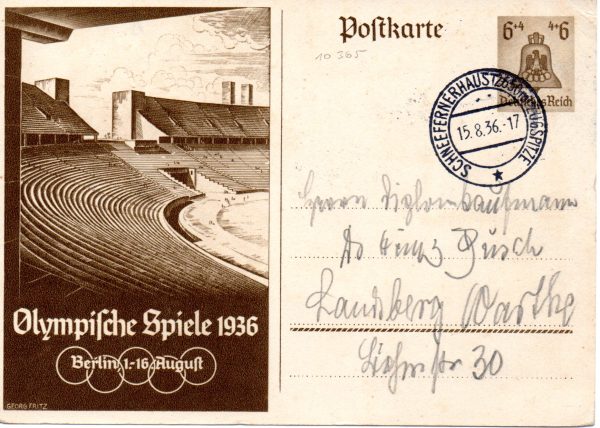 Postkarte
6+4 4+6
Deutsches Reich
10 365
SCHNEEFERNERHAUS ZUGSPITZE
15.8.36.-17
Olympische Spiele 1936
Berlin, 1.-16. August
GEORG FRITZ
Herrn Diplomkaufmann
Busch
Landsberg (Warthe
30